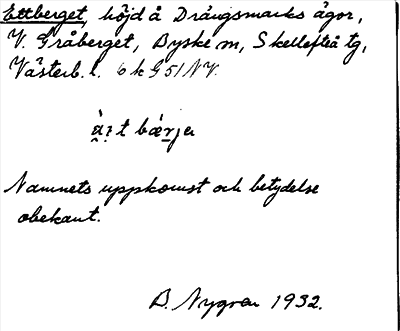 Ettberget, höjd å Drängsmarks ägor,
V. Gråberget, Byske sn, Skellefteå tg,
Västerb. l. 6 k G 51 NV.
t bærja
Namnets uppkomst och betydelse
obekant.
B. Nygren 1932.